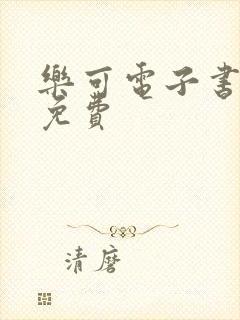 樂可電子書
免費
清麿